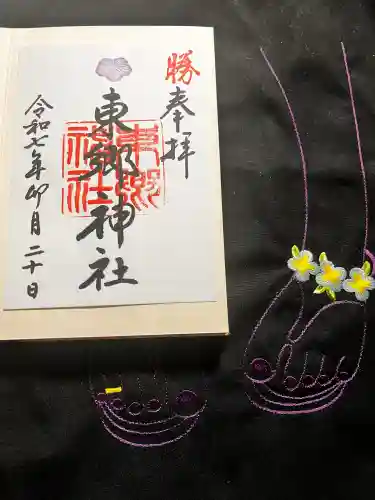 勝
奉拝
東郷神社
東郷神社
令和七年卯月二十日